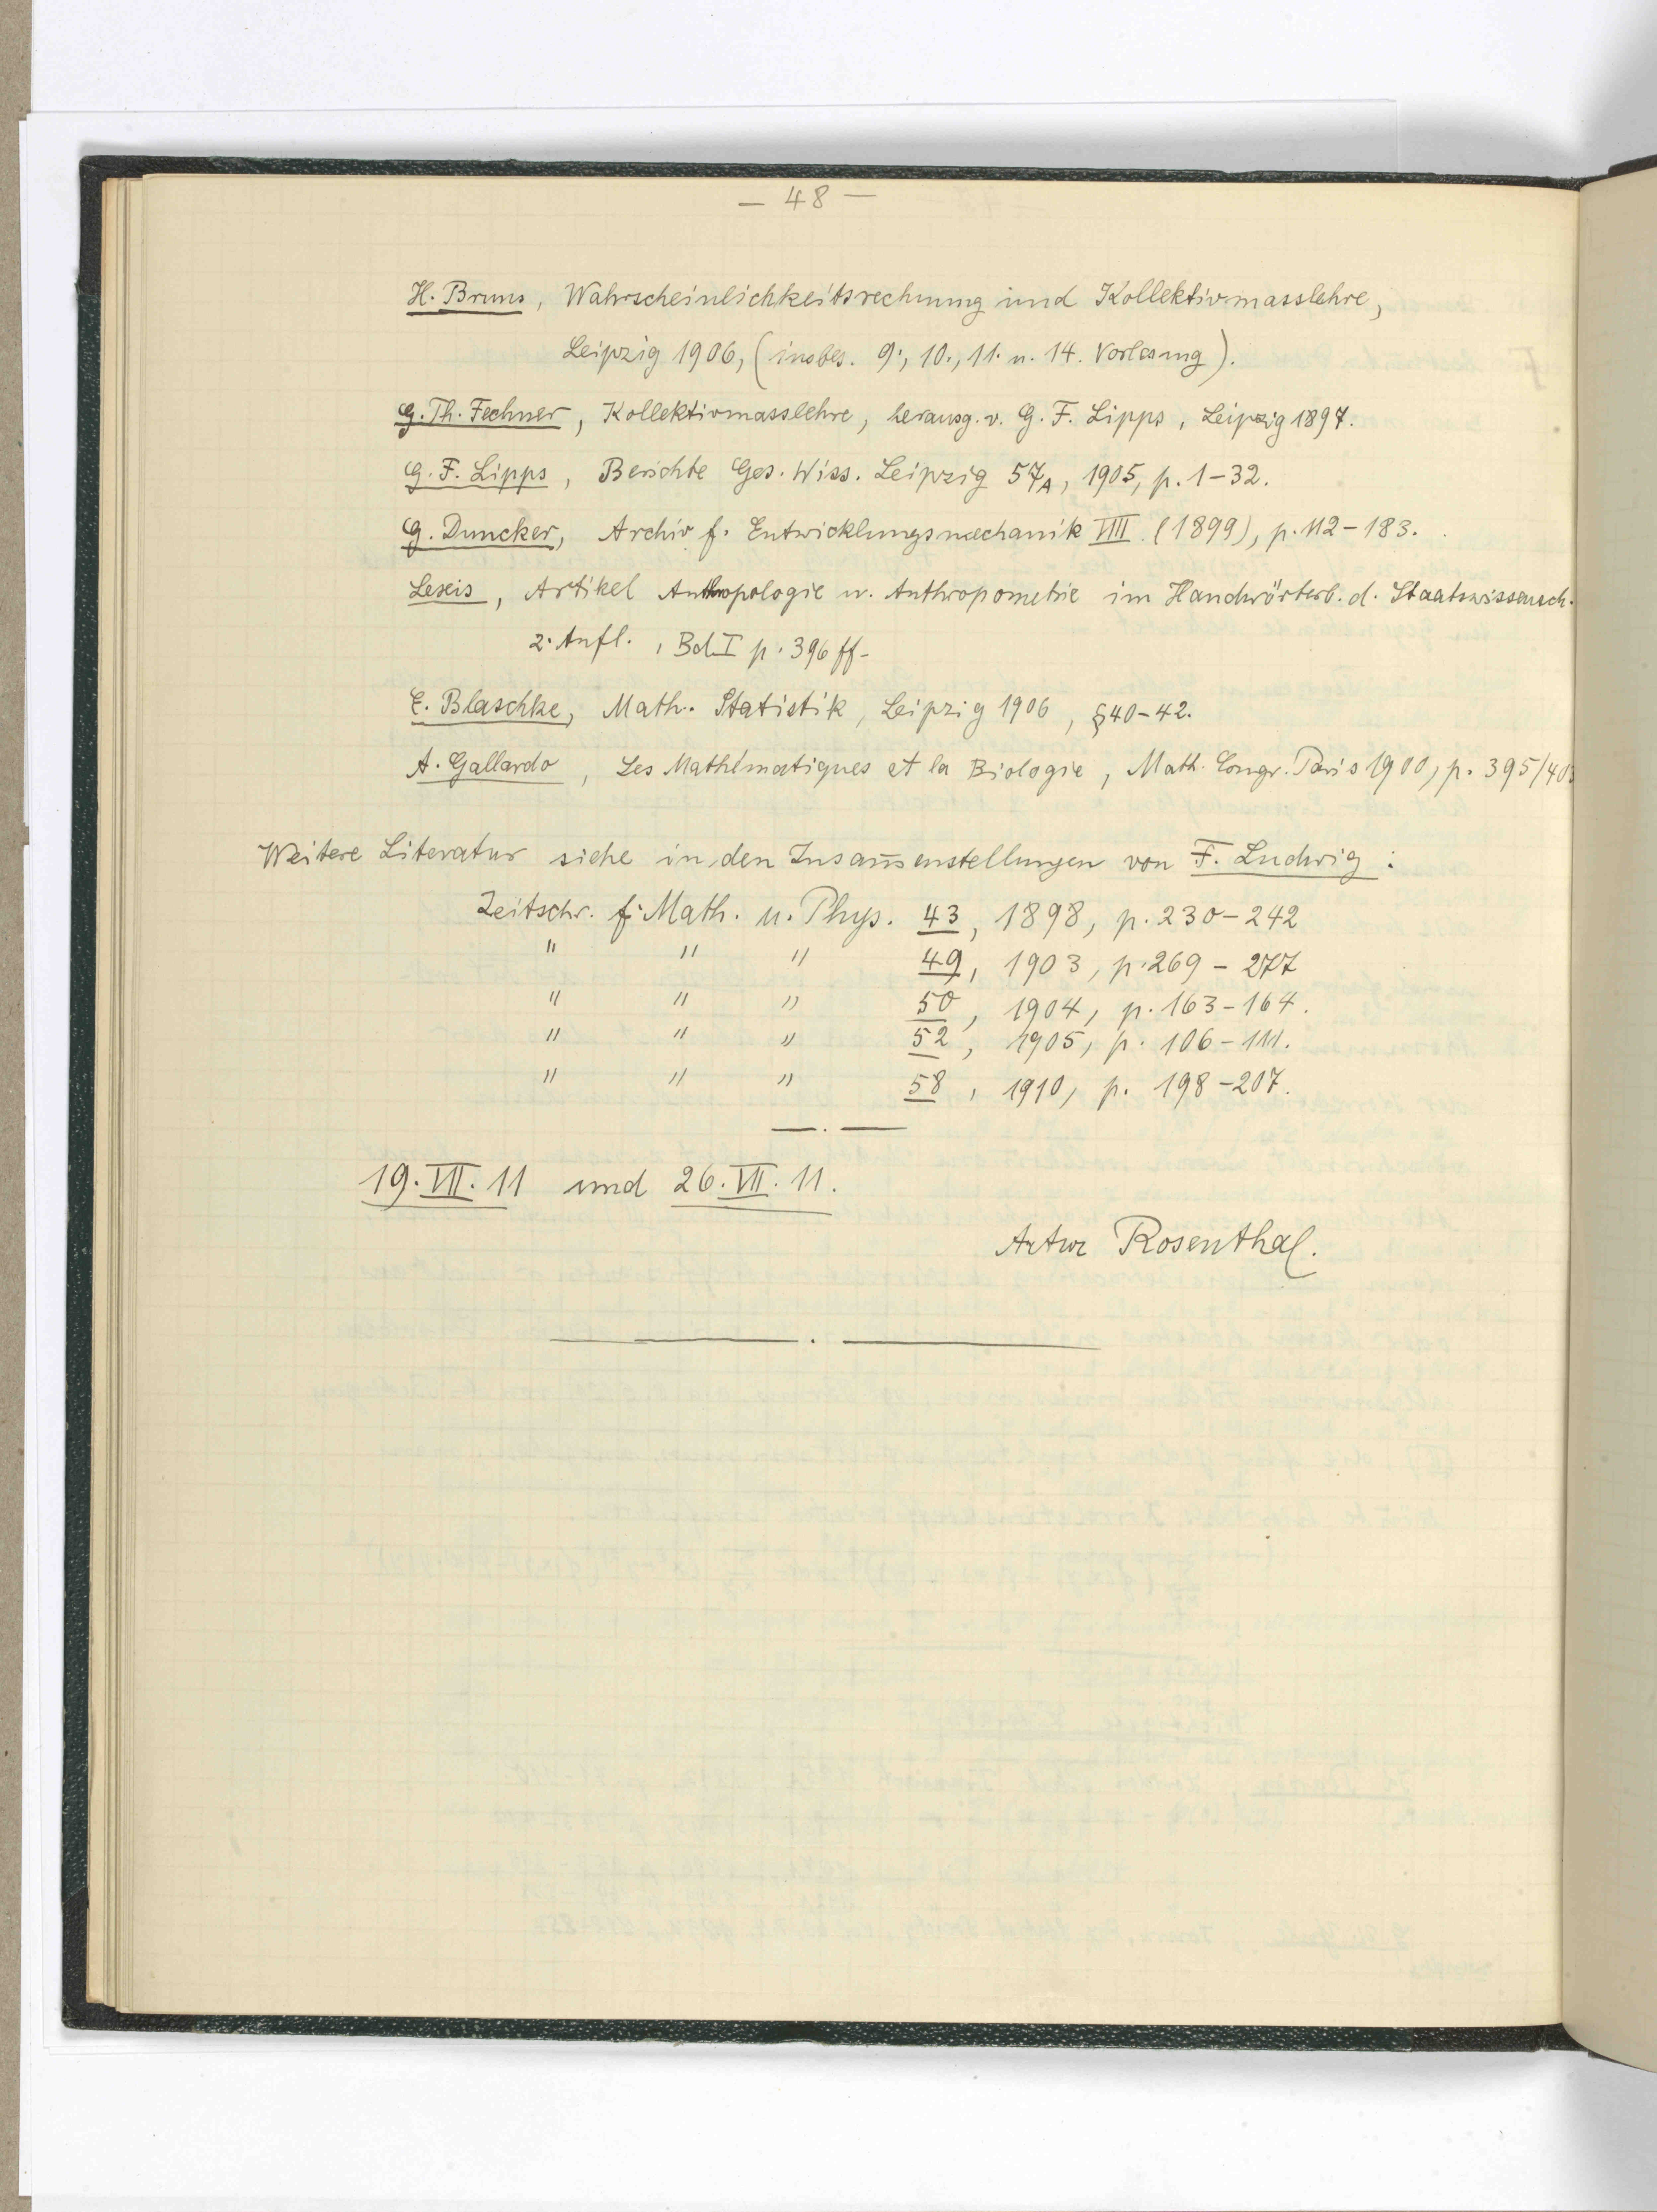 — 48 —
H. Bruns, Wahrscheinlichkeitsrechnung und Kollektivmasslehre,
Leipzig 1906, (insbes. 9., 10., 11. u. 14. Vorlesung).
G. Th. Fechner, Kollektivmasslehre, herausg. v. G. F. Lipps, Leipzig 1897.
G. F. Lipps, Berichte Ges. Wiss. Leipzig 57A, 1905, p. 1-32.
G. Duncker, Archiv f. Entwicklungsmechanik VIII (1899), p. 112-183.
Lexis, Artikel Anthropologie u. Anthropometrie im Handwörterb. d. Staatswissensch.
2. Aufl., Bd. I p. 396 ff.
E. Blaschke, Math. Statistik, Leipzig 1906, §40-42.
A. Gallardo, Les Mathématiques et la Biologie, Math. Congr. Paris 1900, p. 395/403
Weitere Literatur siehe in den Zusam̄enstellungen von F. Ludwig:
Zeitschr. f. Math. u. Phys. 43, 1898, p. 230-242
" " " 49, 1903, p. 269-277
" " " 50, 1904, p. 163-164.
" " " 52, 1905, p. 106-111.
" " " 58, 1910, p. 198-207.
19. VII. 11 und 26. VII. 11.
Artur Rosenthal.